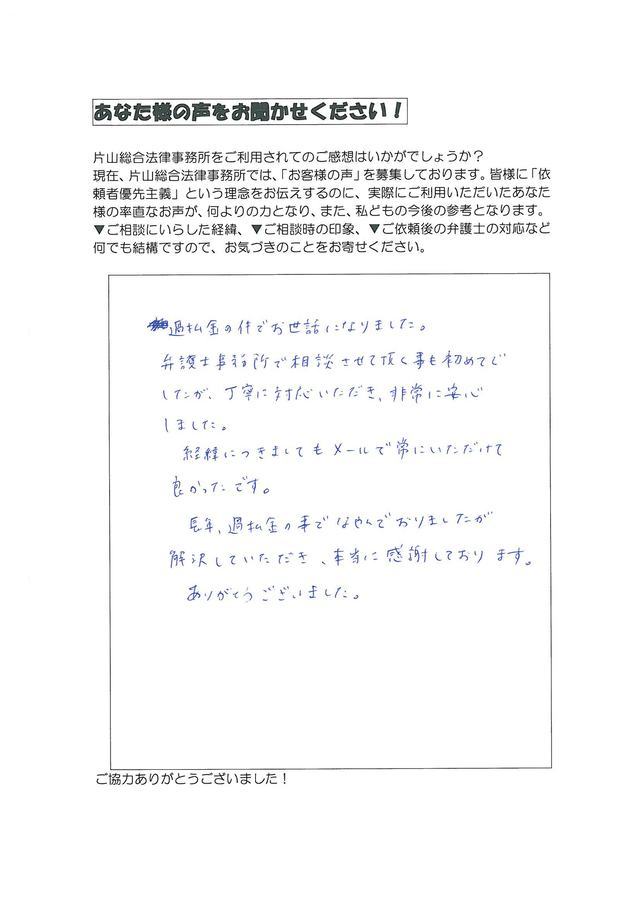 あなた様の声をお聞かせください！
片山総合法律事務所をご利用されてのご感想はいかがでしょうか？
現在、片山総合法律事務所では、「お客様の声」を募集しております。皆様に「依
頼者優先主義」という理念をお伝えするのに、実際にご利用いただいたあなた
様の率直なお声が、何よりの力となり、また、私どもの今後の参考となります。
▼ご相談にいらした経緯、▼ご相談時の印象、▼ご依頼後の弁護士の対応など
何でも結構ですので、お気づきのことをお寄せください。
過払金の件でお世話になりました。
弁護士事務所で相談させて頂く事も初めてで
したが、丁寧に対応いただき、非常に安心
しました。
経緯につきましてもメールで常にいただけて
良かったです。
長年、過払金の事でなやんでおりましたが
解決していただき、本当に感謝しております。
ありがとうございました。
ご協力ありがとうございました！